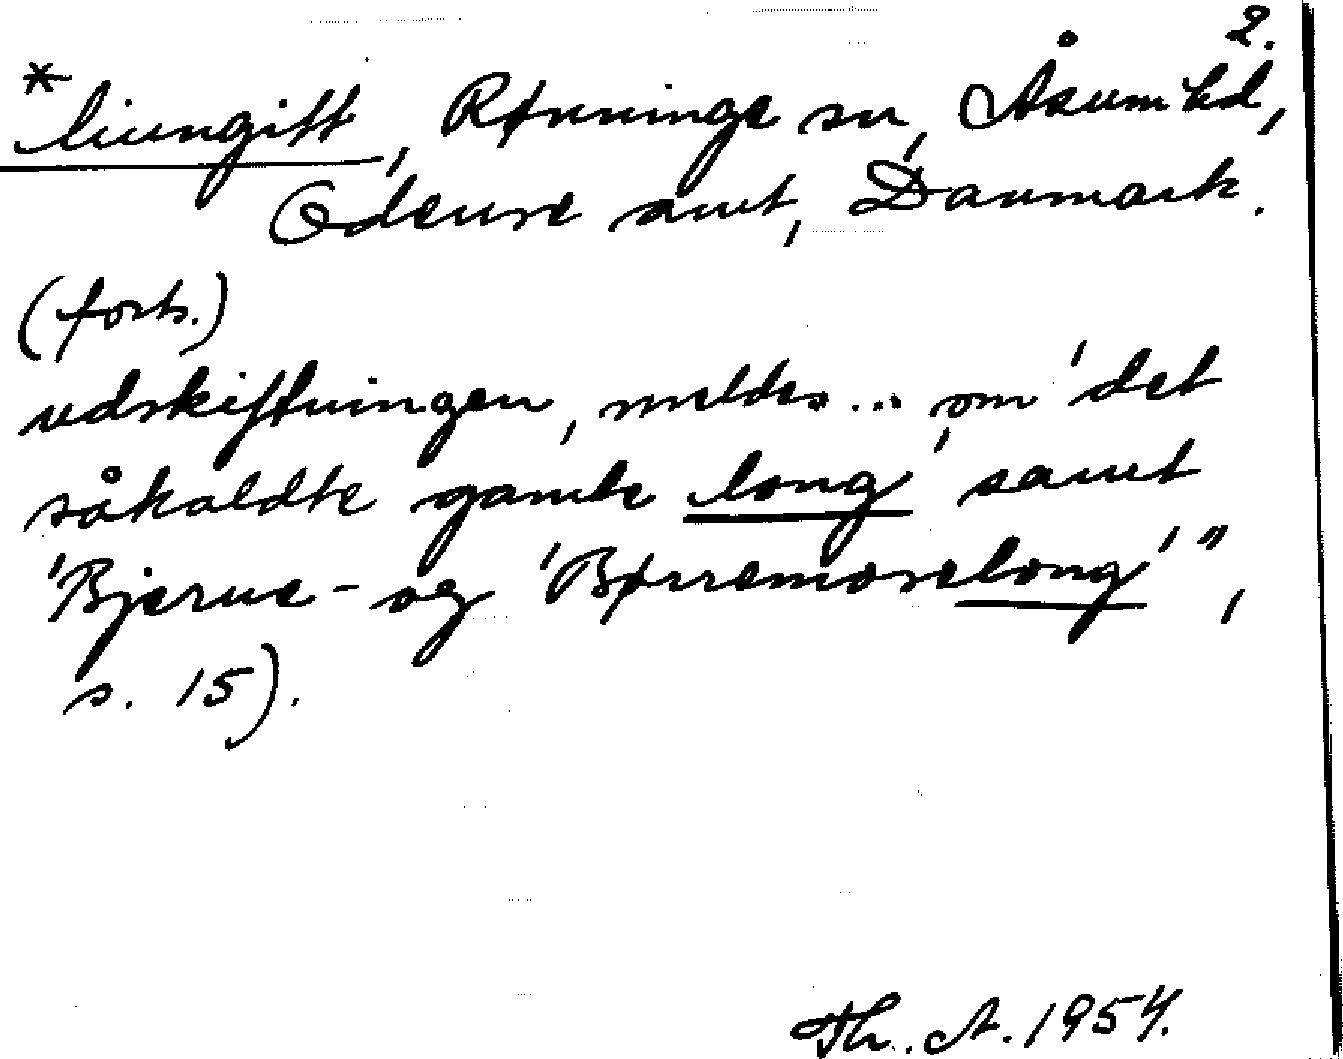 2.
*liungift, Rønninge sn, Åsum hd,
Odense amt, Danmark.
(forts.)
udskiftningen, meldes... om 'det
såkaldte gamle long' samt
'Bjerne- og 'Børremoselong'",
s. 15).
Th. A. 1954.